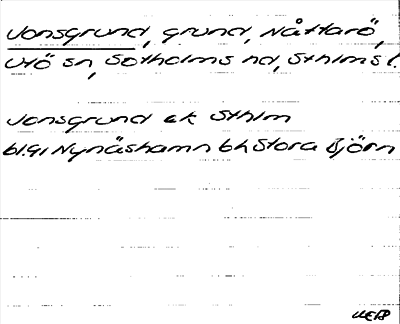 Jonsgrund, grund, Nåttarö,
Utö sn, Sotholms hd, Sthlms l.
Jonsgrund ek Sthlm
bl.91 Nynäshamn bh Stora Björn